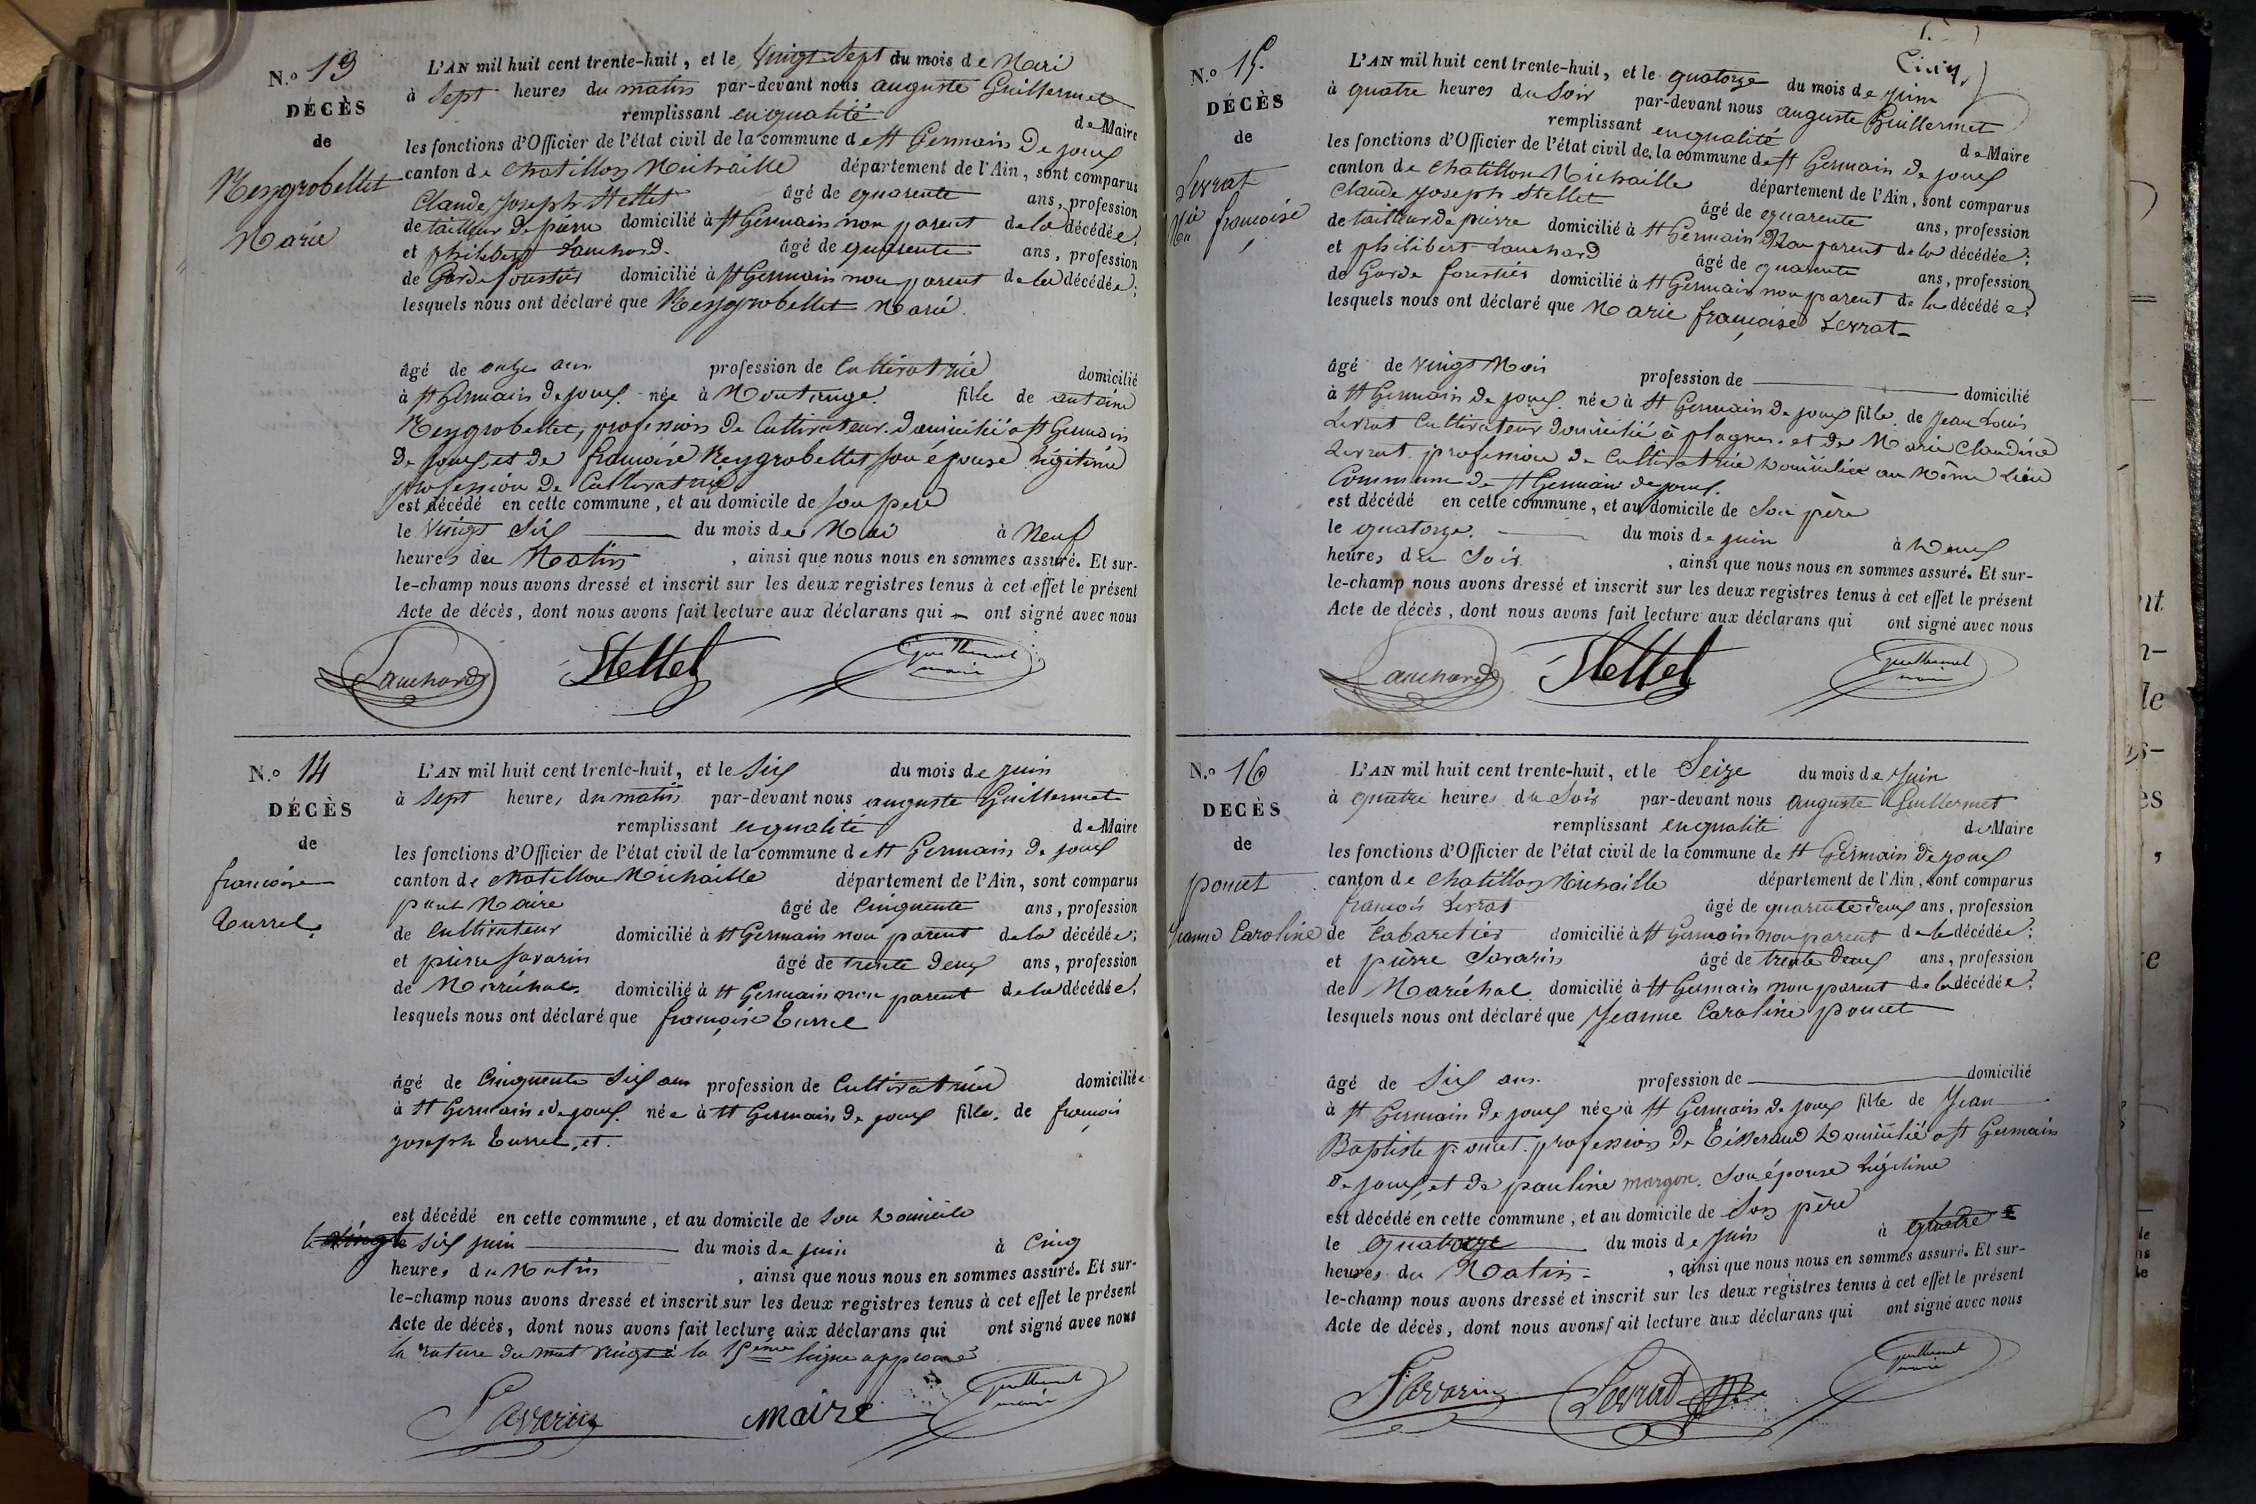 N.o 13
DÉCÈS
de
Reygrobellet
Marie
L'AN mil huit cent trente-huit, et le vingt sept du mois de Mai
à Sept heures du matin par-devant nous auguste Guillermet
remplissant en qualité de Maire
les fonctions d'Officier de l'état civil de la commune de St Germain De joux
canton de Chatillon Michaille département de l'Ain, sont comparus
Claude Joseph Stettet âgé de quarente ans, profession
de tailleur De pierre domicilié à St Germain non parent de la décédée;
et philibert Lanchard. âgé de quarente ans, profession
de Garde forestier domicilié à St Germain non parent de la décédée;
lesquels nous ont déclaré que Reygrobellet Marie.
âgé de onze ans profession de Cultivatrice domicilié
à St Germain De joux née à Montange. fille de antoine
Reygrobellet, profession De Cultivateur. Domicilié a St Germain
De joux, et De francoise Reygrobellet son épouse légitime
profession De Cultivatrice
est décédé en cette commune, et au domicile de son père
le vingt Six du mois de Mai à Neuf
heures du Matin, ainsi que nous nous en sommes assuré. Et sur-
le-champ nous avons dressé et inscrit sur les deux registres tenus à cet effet le présent
Acte de décès, dont nous avons fait lecture aux déclarans qui ont signé avec nous
Lanchard Stettet Guillermet
maire
N.o 14
DÉCÈS
de
francoise
Turrel.
L'AN mil huit cent trente-huit, et le Six du mois de juin
à Sept heures du matin par-devant nous auguste Guillermet
remplissant en qualité de Maire
les fonctions d'Officier de l'état civil de la commune de St Germain De joux
canton de Chatillon Michaille département de l'Ain, sont comparus
paul Maire âgé de Cinquente ans, profession
de Cultivateur domicilié à St Germain non parent de la décédée;
et pierre Savarin âgé de trente Deux ans, profession
de Maréchal domicilié à St Germain non parent de la décédée;
lesquels nous ont déclaré que françoise Turrel
âgé de Cinquente Six ans profession de Cultivatrice domiciliée
à St Germain de joux. née à St Germain De joux fille. de françois
joseph Turrel, et.
est décédé en cette commune, et au domicile de Son Domicile
le vingt six juin du mois de juin à Cinq
heures du Matin, ainsi que nous nous en sommes assuré. Et sur-
le-champ nous avons dressé et inscrit sur les deux registres tenus à cet effet le présent
Acte de décès, dont nous avons fait lecture aux déclarans qui ont signé avec nous
la rature du mot vingt à la 15ème ligne approuvé
Savarin maire Guillermet
maire
Cinq
N.o 15.
DÉCÈS
de
Levrat
Mie francoise
L'AN mil huit cent trente-huit, et le quatorze du mois de juin
à quatre heures du Soir par-devant nous auguste Guillermet
remplissant en qualité de Maire
les fonctions d'Officier de l'état civil de la commune de St Germain De joux
canton de Chatillon Michaille département de l'Ain, sont comparus
Claude Joseph Stettet âgé de quarente ans, profession
de tailleur de pierre domicilié à St Germain Non parent de la décédée;
et philibert Lanchard âgé de quarente ans, profession
de Garde forestier domicilié à St Germain non parent de la décédée;
lesquels nous ont déclaré que Marie françoise Levrat
âgé de vingt Mois profession de domicilié
à St Germain de joux. née à St Germain De joux fille. de Jean Louis
Levrat Cultivateur domicilié à plagnes. et de Marie Claudine
Levrat. profession de Cultivatrice domiciliée au même Lieu
Commune de St Germain de joux.
est décédé en cette commune, et au domicile de Son père
le quatorze. du mois de juin à Deux
heures du Soir, ainsi que nous nous en sommes assuré. Et sur-
le-champ nous avons dressé et inscrit sur les deux registres tenus à cet effet le présent
Acte de décès, dont nous avons fait lecture aux déclarans qui ont signé avec nous
Lanchard Stettet Guillermet
maire
N.o 16
DÉCÈS
de
poncet
Jeanne Caroline
L'AN mil huit cent trente-huit, et le Seize du mois de Juin
à quatre heures du Soir par-devant nous auguste Guillermet
remplissant en qualité de Maire
les fonctions d'Officier de l'état civil de la commune de St Germain De joux
canton de Chatillon Michaille département de l'Ain, sont comparus
francois Levrat âgé de quarente deux ans, profession
de Cabaretier domicilié à St Germain non parent de la décédée;
et pierre Savarin âgé de trente Deux ans, profession
de Maréchal domicilié à St Germain non parent de la décédée;
lesquels nous ont déclaré que Jeanne Caroline poncet
âgé de Six ans. profession de domicilié
à St Germain De joux née à St Germain De joux fille de Jean
Baptiste poncet. profession De Tisserand Domicilié a St Germain
De joux, et De pauline margon. Son épouse légitime
est décédé en cette commune, et au domicile de Son père
le quatorze du mois de juin à quatre
heures du Matin, ainsi que nous nous en sommes assuré. Et sur-
le-champ nous avons dressé et inscrit sur les deux registres tenus à cet effet le présent
Acte de décès, dont nous avons fait lecture aux déclarans qui ont signé avec nous
Savarin Levrat Guillermet
maire